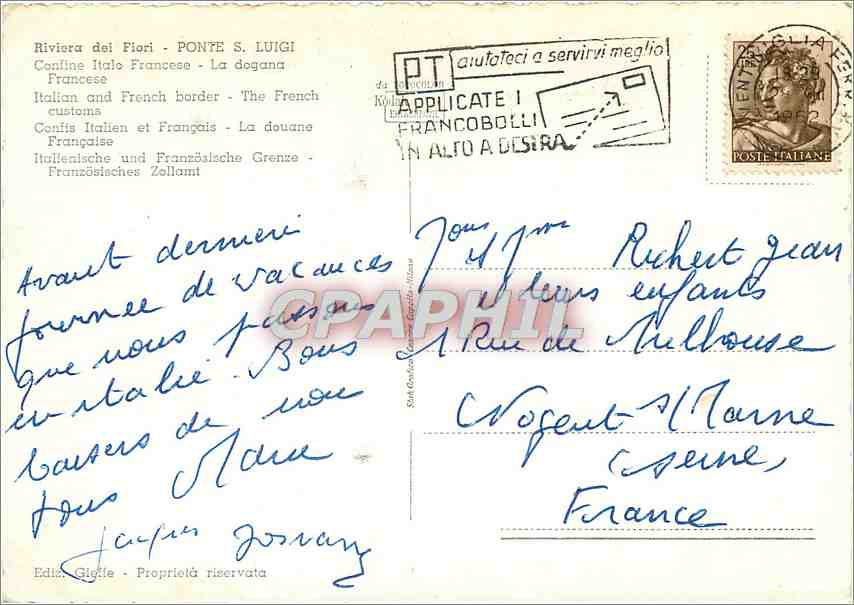 Riviera dei Fiori - PONTE S. LUIGI
Confine Italo Francese - La dogana
Francese
Italian and French border - The French
customs
Confis Italien et Français - La douane
Française
Italienische und Französische Grenze -
Französisches Zollamt
PT aiutateci a servirvi meglio
APPLICATE I
FRANCOBOLLI
IN ALTO A DESTRA
25
LIRE
VENTIMIGLIA
1962
POSTE ITALIANE
Avant derniere
journee de vacances
que nous passons
en italie. Bons
baisers de nous
tous Marie
Jacques
Mr et Mme Richert Jean
et leurs enfants
1 Rue de Mulhouse
Nogent s/Marne
(seine)
France
CPAPHIL
Ediz. Gieffe - Proprietà riservata